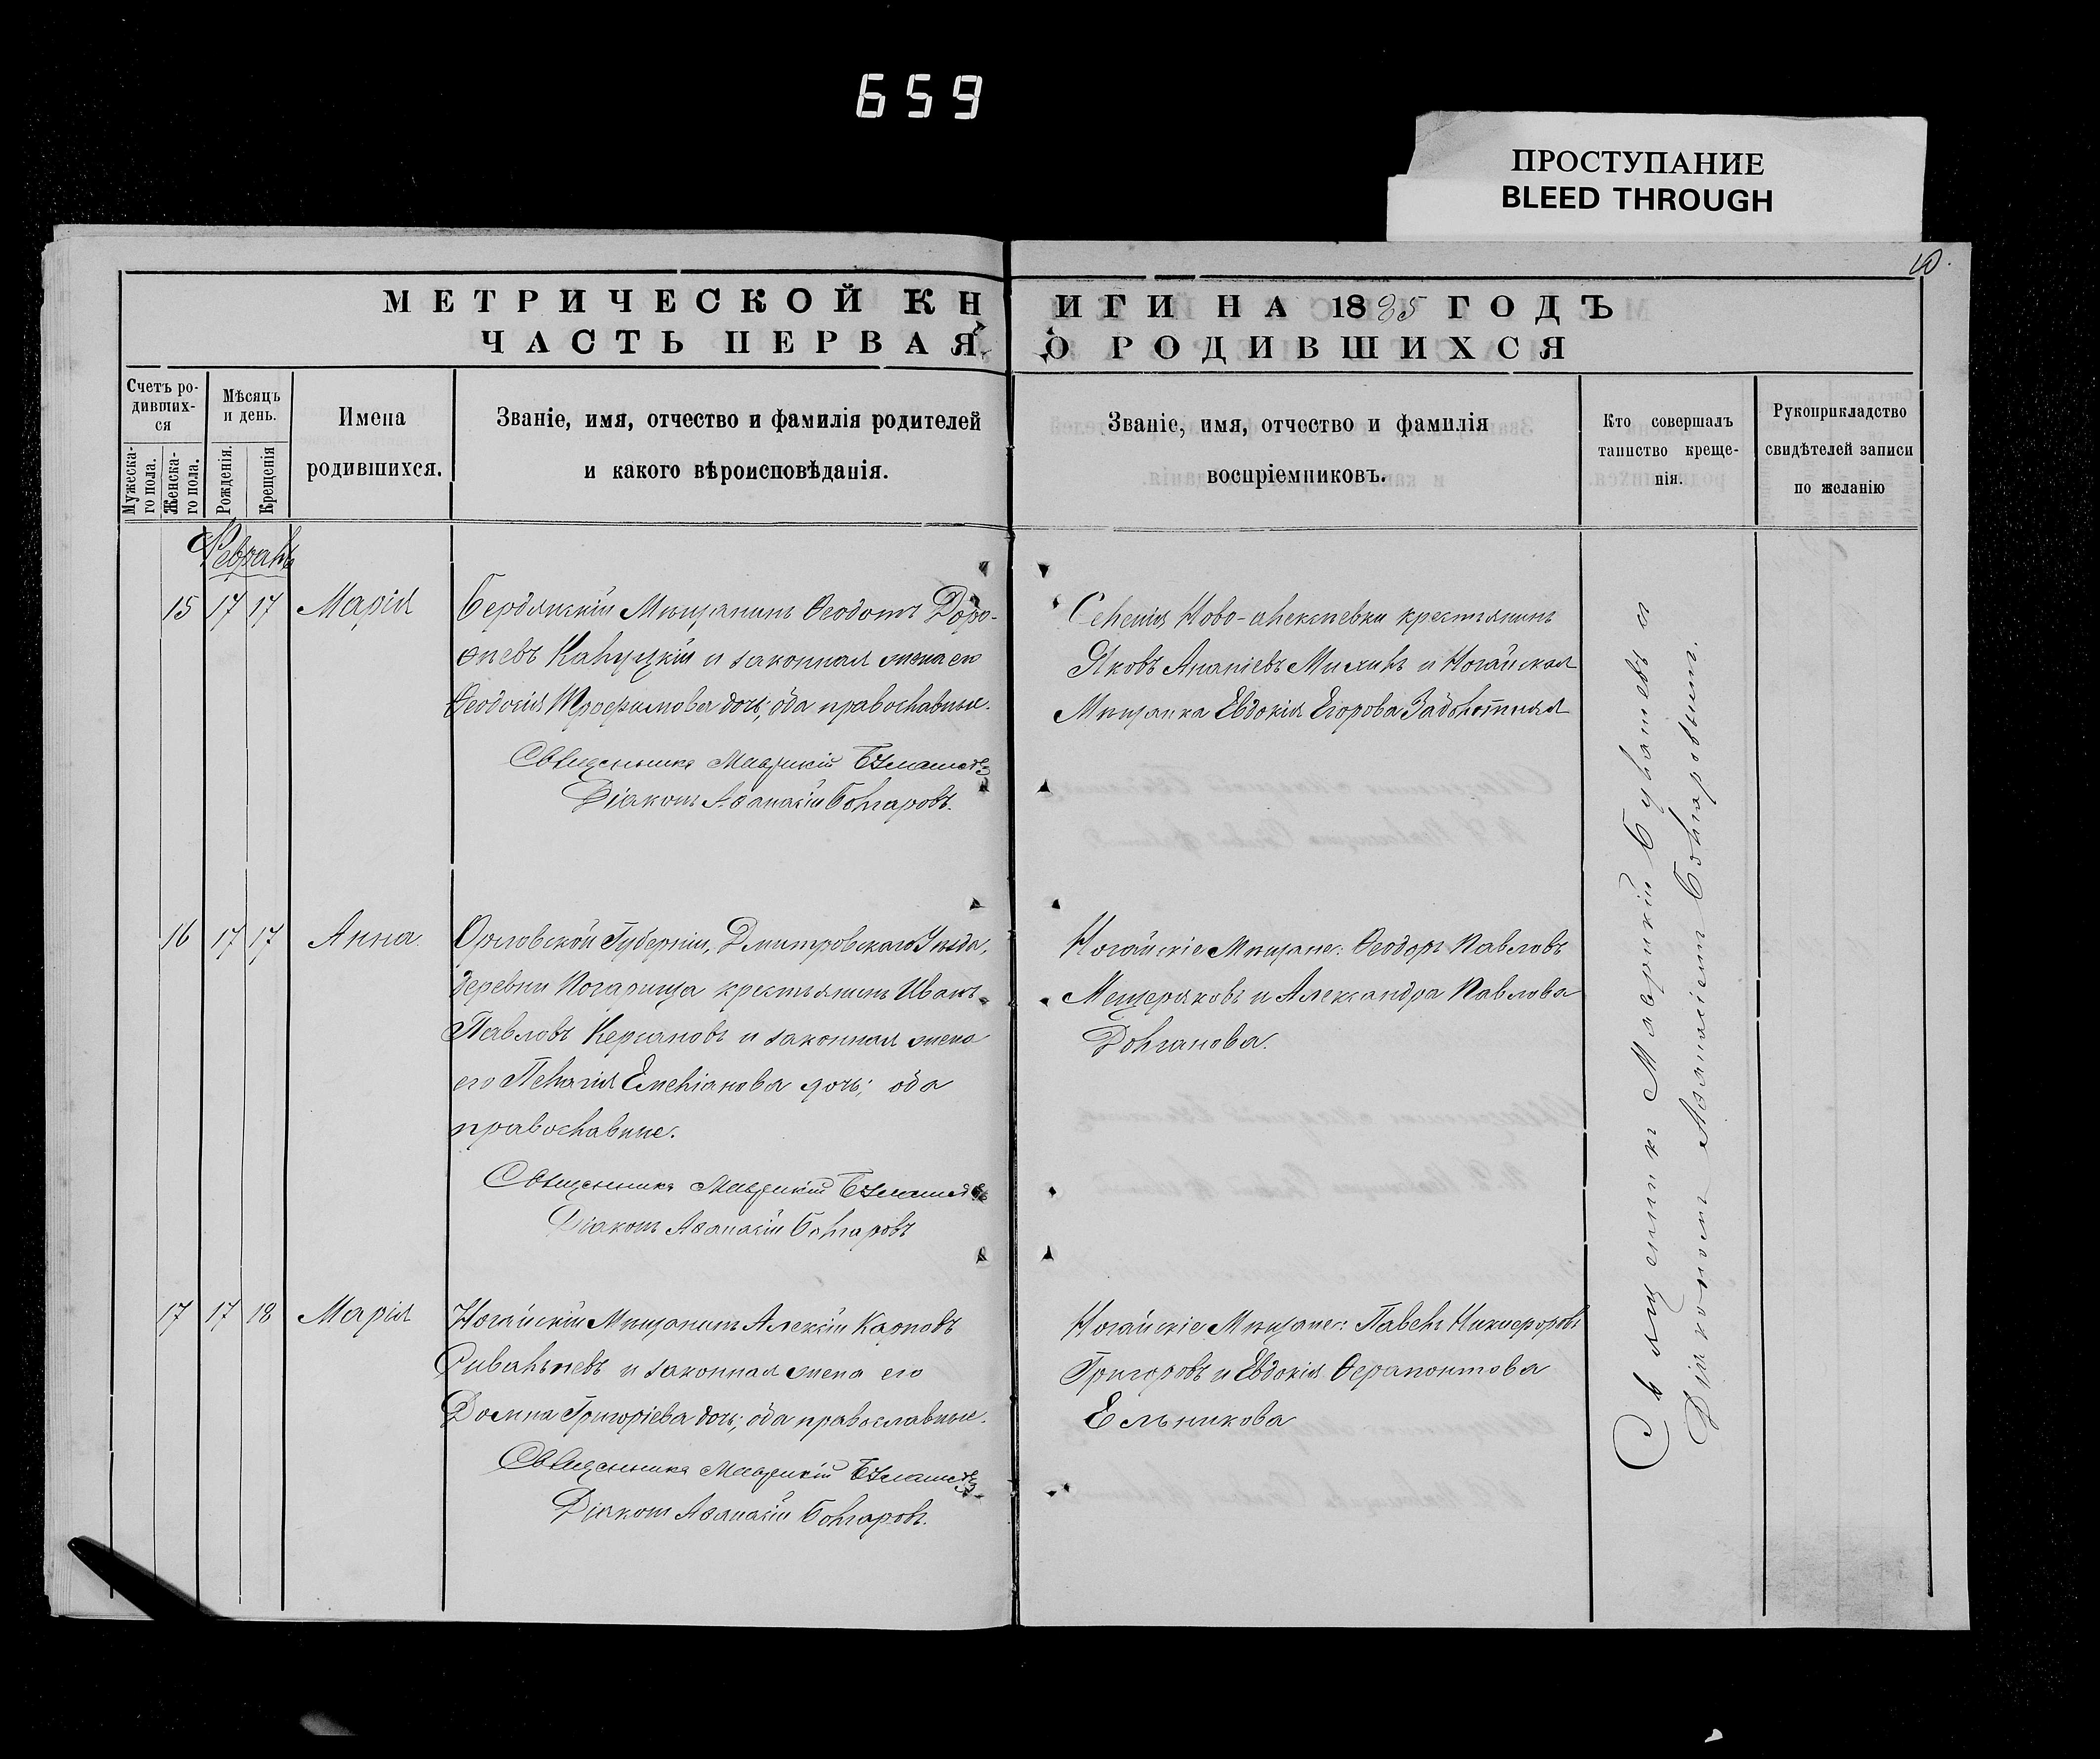 659
ПРОСТУПАНИЕ
BLEED THROUGH
10.
МЕТРИЧЕСКОЙ КНИГИ НА 1885 ГОДЪ
ЧАСТЬ ПЕРВАЯ, О РОДИВШИХСЯ
Счетъ родивших-
ся
Мужеска-
го пола.
Женска-
го пола.
Мѣсяцъ
и день.
Рожденія.
Крещенія
Имена
родившихся.
Званіе, имя, отчество и фамилія родителей
и какого вѣроисповѣданія.
Званіе, имя, отчество и фамилія
воспріемниковъ.
Кто совершалъ
таинство креще-
нія.
Рукоприкладство
свидѣтелей записи
по желанію
Февраль
15 17 17 Марія
Бердянскій Мѣщанинъ Ѳеодотъ Доро-
ѳеевъ Калуцкій и законная жена его
Ѳеодосія Трофимова дочь; оба православные.
Священникъ Маврикій Булашевъ
Діаконъ Аѳанасій Болгаровъ.
Селенія Ново-алексѣевки крестьянинъ
Яковъ Ананіевъ Михинъ и Ногайская
Мѣщанка Евдокія Егорова Задохотняя
16 17 17 Анна.
Орловской Губерніи, Дмитровскаго Уѣзда,
деревни Погарища крестьянинъ Иванъ
Павловъ Керсановъ и законная жена
его Пелагія Емеліанова дочь; оба
православные.
Священникъ Маврикій Булашевъ
Діаконъ Аѳанасій Болгаровъ
Ногайскіе Мѣщане: Ѳеодоръ Павловъ
Мещеряковъ и Александра Павлова
Долганова.
17 17 18 Марія
Ногайскій Мѣщанинъ Алексій Карповъ
и законная жена его
Домна Григоріева дочь; оба православные.
Священникъ Маврикій Булашевъ
Діаконъ Аѳанасій Болгаровъ.
Ногайскіе Мѣщане: Павелъ Никифоровъ
Григоровъ и Евдокія Ѳерапонтова
Ельникова
Священникъ Маврикій Булашевъ съ
Діакономъ Аѳанасіемъ Болгаровымъ.